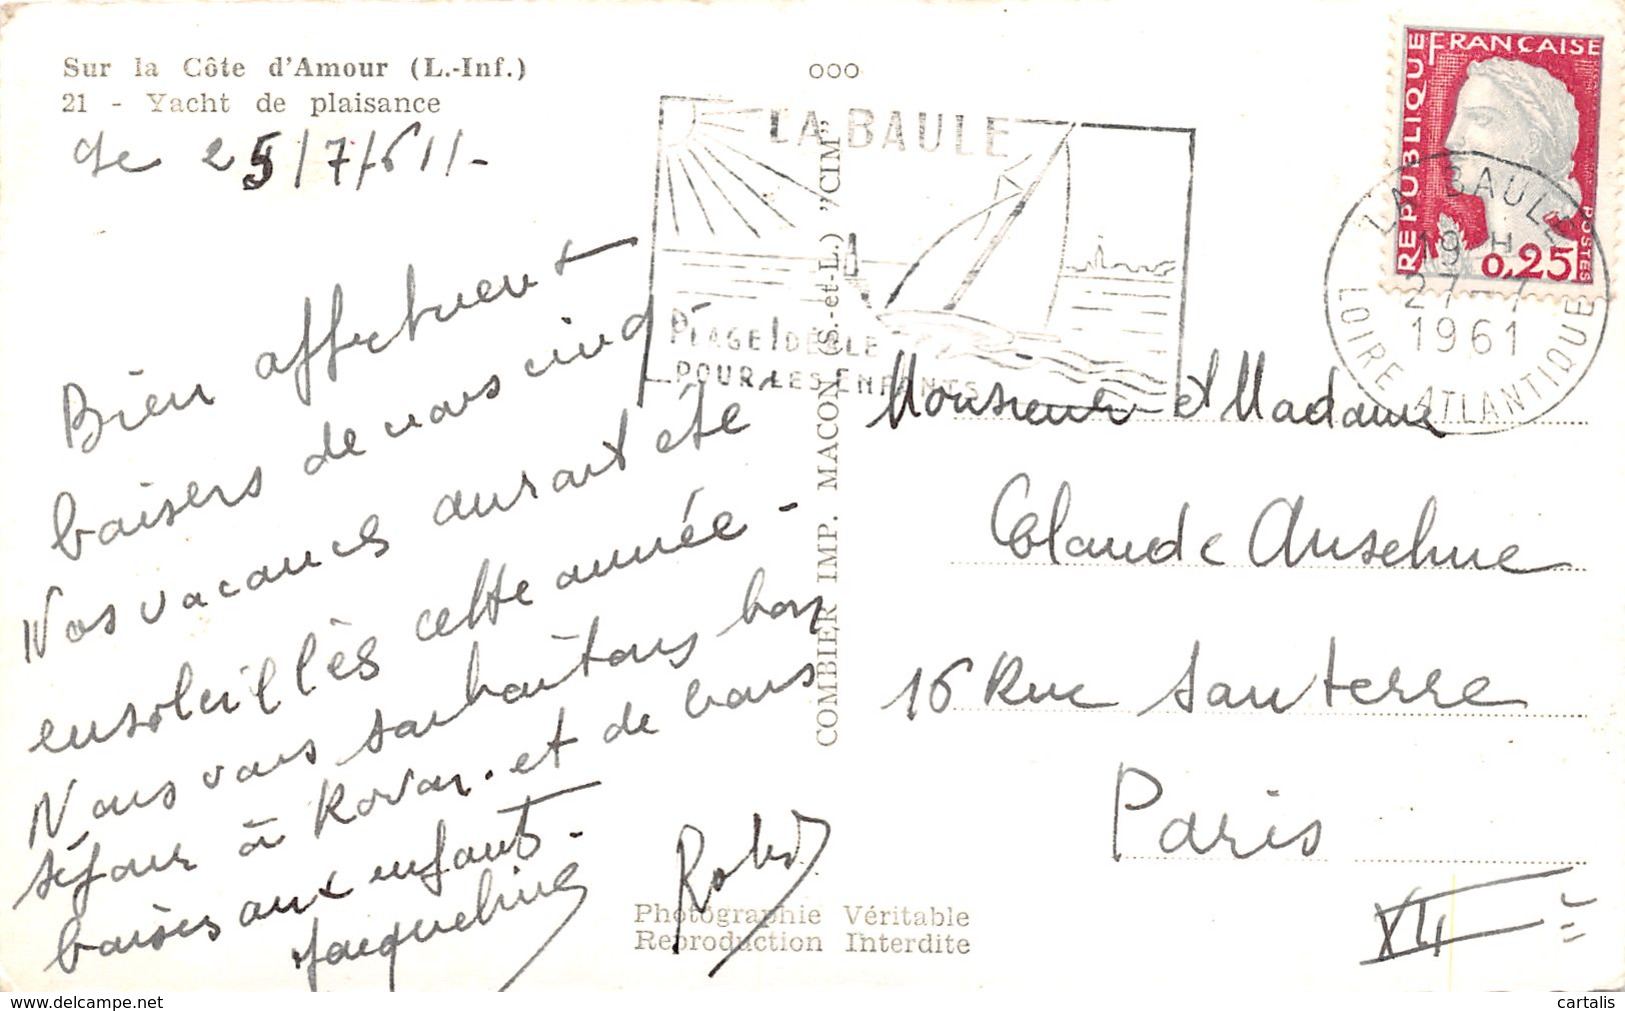 Sur la Côte d'Amour (L.-Inf.)
21 - Yacht de plaisance
Le 25/7/61/-
Bien affectueux
baisers de nous cinq -
Nos vacances auront été
ensoleillès cette année -
Nous vous souhaitons bon
séjour à Rovar. et de bons
baisers aux enfants -
Jacqueline Robert
000
LA BAULE
PLAGE IDÉALE
POUR LES ENFANTS
COMBIER IMP. MACON (S.-et-L.) "CIM"
RÉPUBLIQUE FRANÇAISE
POSTES
0,25
LA BAULE
19 H
27 - 7
1961
LOIRE ATLANTIQUE
Monsieur et Madame
Claude Anselme
16 Rue Santerre
Paris
XII
Photographie Véritable
Reproduction Interdite
www.delcampe.net
cartalis